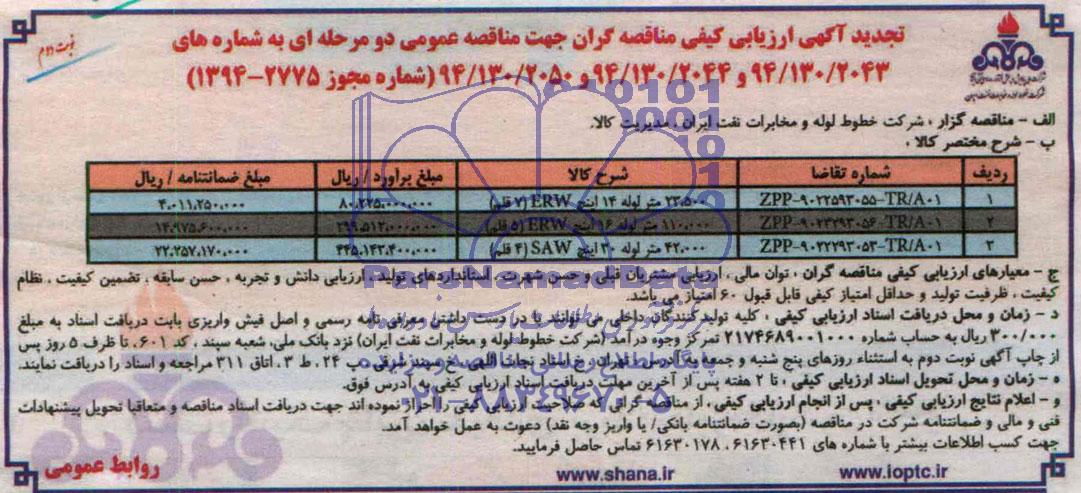 نوبت دوم
تجدید آگهی ارزیابی کیفی مناقصه گران جهت مناقصه عمومی دو مرحله ای به شماره های
۹۴/۱۳۰/۲۰۴۳ و ۹۴/۱۳۰/۲۰۴۴ و ۹۴/۱۳۰/۲۰۵۰ (شماره مجوز ۲۷۷۵-۱۳۹۴)
الف - مناقصه گزار ، شرکت خطوط لوله و مخابرات نفت ایران ، مدیریت کالا.
ب - شرح مختصر کالا ،
ردیف شماره تقاضا شرح کالا مبلغ برآورد / ریال مبلغ ضمانتنامه / ریال
۱ ZPP-۹۰۲۲۵۹۳۰۵۵-TR/A۰۱ ۲۳،۵۰۰ متر لوله ۱۴ اینچ ERW (۷ قلم) ۸۰،۲۲۵،۰۰۰،۰۰۰ ۴،۰۱۱،۲۵۰،۰۰۰
۲ ۱۱۰،۰۰۰ متر لوله ۱۶ اینچ ERW (۵ قلم) ۲۹۹،۵۱۲،۰۰۰،۰۰۰ ۱۴،۹۷۵،۶۰۰،۰۰۰
۳ ۴۲،۰۰۰ متر لوله ۲۰ اینچ SAW (۴ قلم) ۴۴۵،۱۴۳،۴۰۰،۰۰۰ ۲۲،۲۵۷،۱۷۰،۰۰۰
ج - معیارهای ارزیابی کیفی مناقصه گران ، توان مالی ، ارزیابی مشتریان قبلی و حسن شهرت ، استانداردهای تولید ، ارزیابی دانش و تجربه ، حسن سابقه ، تضمین کیفیت ، نظام
کیفیت ، ظرفیت تولید و حداقل امتیاز کیفی قابل قبول ۶۰ امتیاز می باشد.
د - زمان و محل دریافت اسناد ارزیابی کیفی ، کلیه تولیدکنندگان داخلی می توانند با در دست داشتن معرفی نامه رسمی و اصل فیش واریزی بابت دریافت اسناد به مبلغ
۳۰۰/۰۰۰ ریال به حساب شماره ۲۱۷۴۶۸۹۰۰۱۰۰۰ تمرکز وجوه درآمد (شرکت خطوط لوله و مخابرات نفت ایران) نزد بانک ملی، شعبه سپند ، کد ۶۰۱، تا ظرف ۵ روز پس
از چاپ آگهی نوبت دوم به استثناء روزهای پنج شنبه و جمعه به آدرس ، تهران ، خ استاد نجات اللهی ، خ سپند شرقی ، پ ۲۴ ، ط ۳ ، اتاق ۳۱۱ مراجعه و اسناد را دریافت نمایند.
ه - زمان و محل تحویل اسناد ارزیابی کیفی ، تا ۲ هفته پس از آخرین مهلت دریافت اسناد ارزیابی کیفی به آدرس فوق.
و - اعلام نتایج ارزیابی کیفی ، پس از انجام ارزیابی کیفی ، از مناقصه گرانی که صلاحیت ارزیابی کیفی را احراز نموده اند جهت دریافت اسناد مناقصه و متعاقبا تحویل پیشنهادات
فنی و مالی و ضمانتنامه شرکت در مناقصه (بصورت ضمانتنامه بانکی/ یا واریز وجه نقد) دعوت به عمل خواهد آمد.
جهت کسب اطلاعات بیشتر با شماره های ۶۱۶۳۰۴۴۱ ، ۶۱۶۳۰۱۷۸ تماس حاصل فرمایید.
www.ioptc.ir
www.shana.ir
روابط عمومی
ParsNamadData
۰۲۱-۸۸۳۴۹۶۷۰-۵